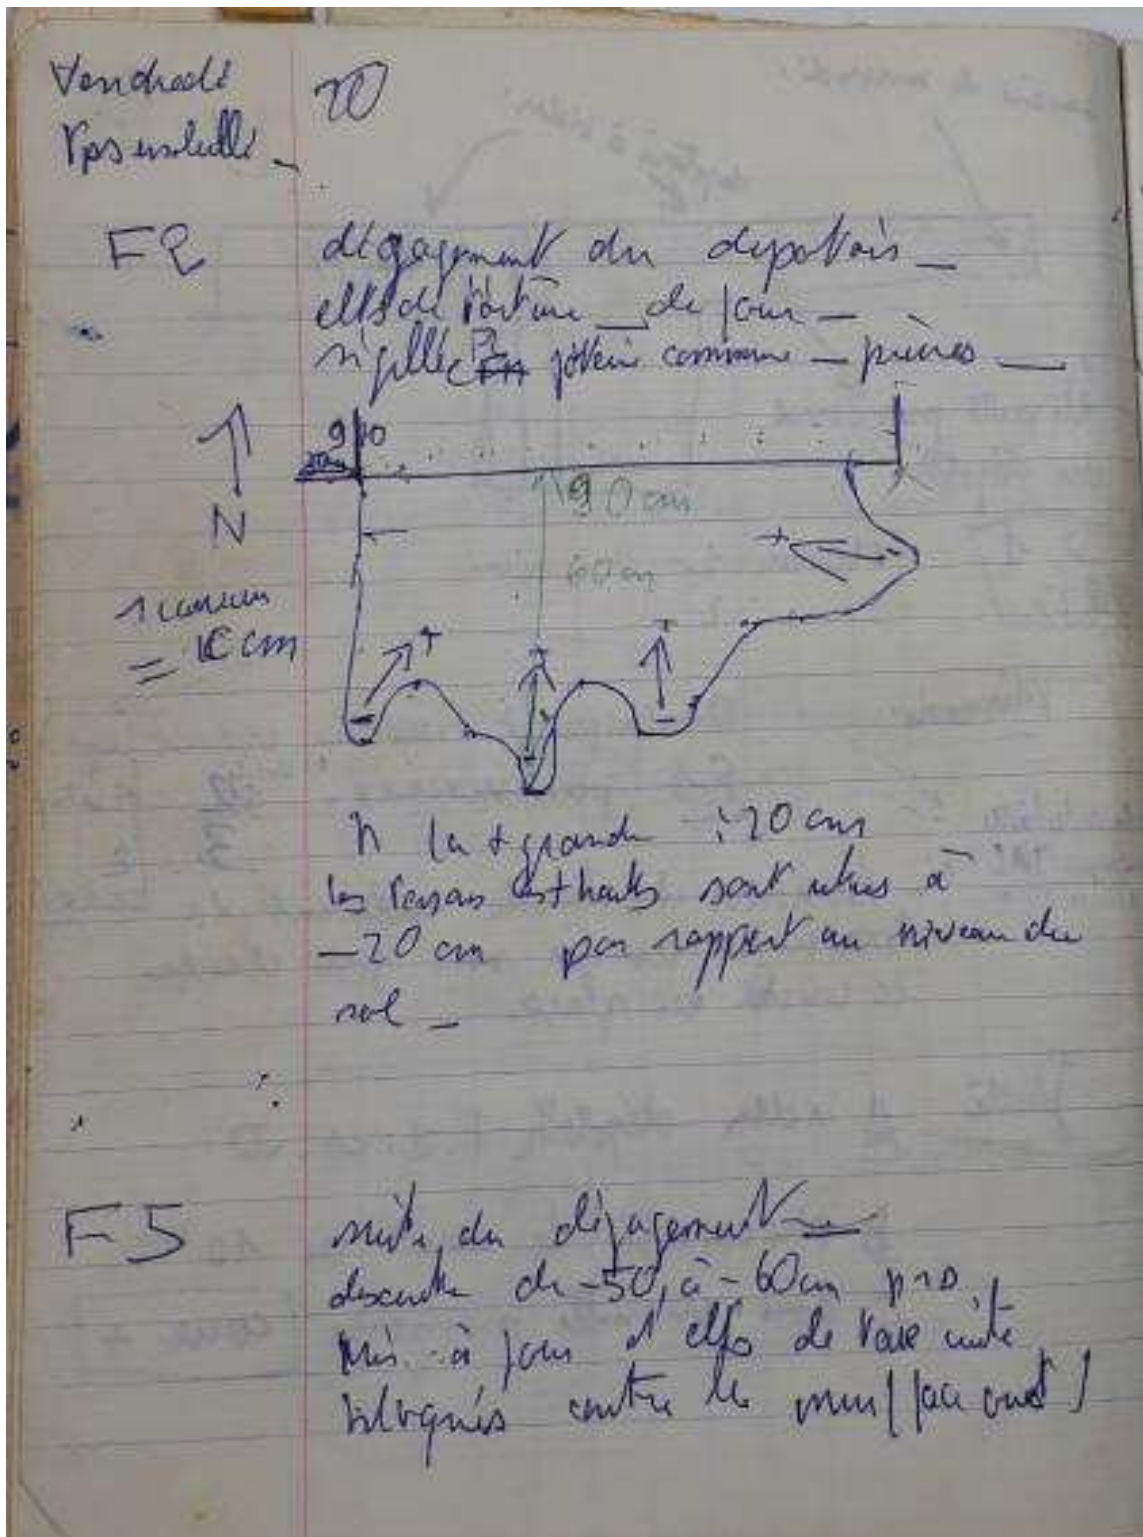 Vendredi 20
Tps ensoleillé_
F2 dégagement du dépotoir_
elts de _ de four _
sigillée poterie commune _ pierres _
9 10
N
90 cm
60 cm
1 carreau
= 10 cm
+
h la + grande : 20 cm
les tessons les + hauts sont situés à
-20 cm par rapport au niveau du
sol _
F5 suite du dégagement
descente de -50 à -60 cm p.r.
mis à jour d'elts de vase
bloqués contre le mur (face ouest)